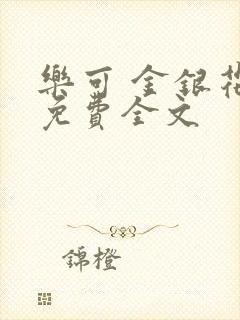 樂可 金銀花
免費全文
錦橙